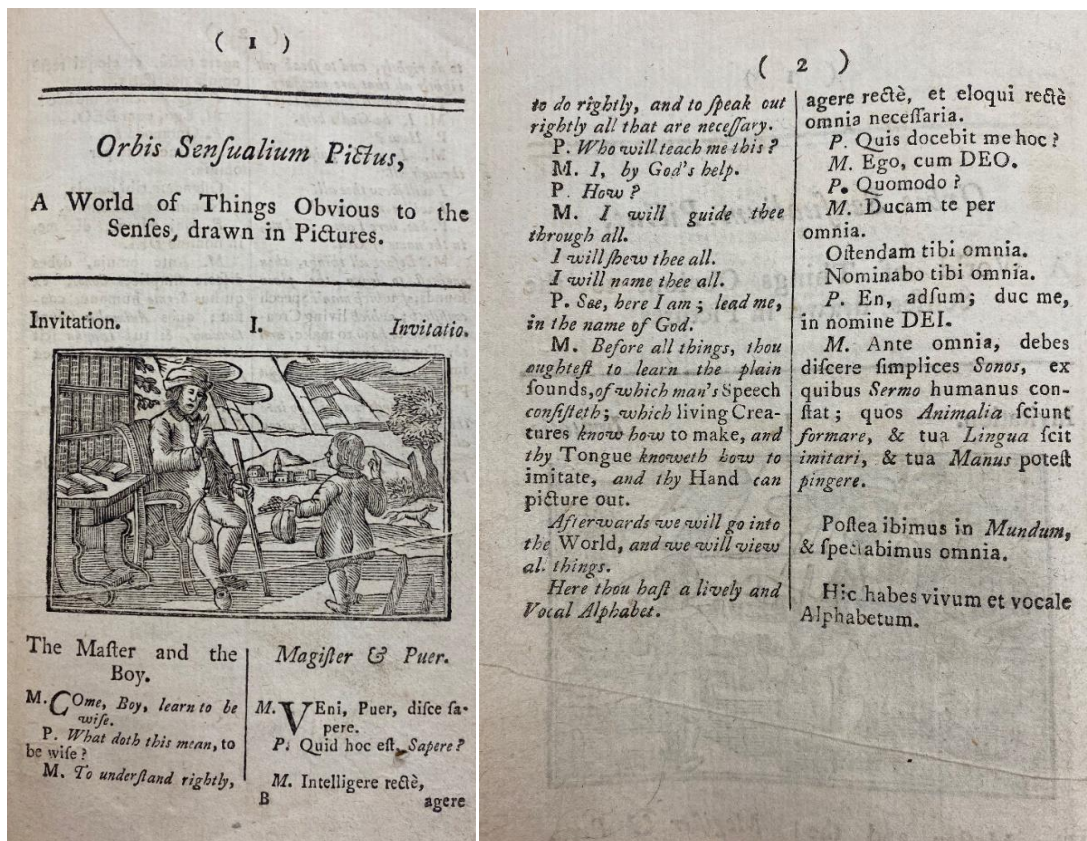 ( 1 )
Orbis Senſualium Pictus,
A World of Things Obvious to the
Senſes, drawn in Pictures.
Invitation. I. Invitatio.
The Maſter and the
Boy.
M. COme, Boy, learn to be
wiſe.
P. What doth this mean, to
be wiſe?
M. To underſtand rightly,
Magiſter & Puer.
M. VEni, Puer, diſce ſa-
pere.
P. Quid hoc eſt, Sapere?
M. Intelligere rectè,
B agere
( 2 )
to do rightly, and to ſpeak out
rightly all that are neceſſary.
P. Who will teach me this?
M. I, by God's help.
P. How?
M. I will guide thee
through all.
I will ſhew thee all.
I will name thee all.
P. See, here I am; lead me,
in the name of God.
M. Before all things, thou
oughteſt to learn the plain
ſounds, of which man's Speech
conſiſteth; which living Crea-
tures know how to make, and
thy Tongue knoweth how to
imitate, and thy Hand can
picture out.
Afterwards we will go into
the World, and we will view
all things.
Here thou haſt a lively and
Vocal Alphabet.
agere rectè, et eloqui rectè
omnia neceſſaria.
P. Quis docebit me hoc?
M. Ego, cum DEO.
P. Quomodo?
M. Ducam te per
omnia.
Oſtendam tibi omnia.
Nominabo tibi omnia.
P. En, adſum; duc me,
in nomine DEI.
M. Ante omnia, debes
diſcere ſimplices Sonos, ex
quibus Sermo humanus con-
ſtat; quos Animalia ſciunt
formare, & tua Lingua ſcit
imitari, & tua Manus poteſt
pingere.
Poſtea ibimus in Mundum,
& ſpectabimus omnia.
Hic habes vivum et vocale
Alphabetum.